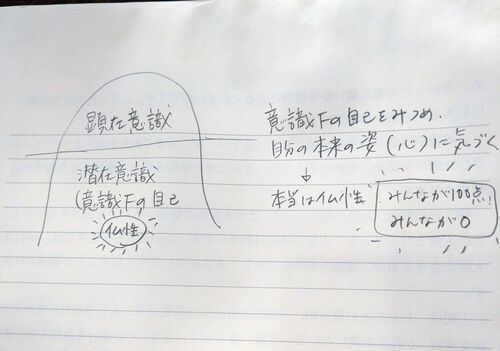 顕在意識
潜在意識
(意識下の自己
仏性
意識下の自己をみつめ、
自分の本来の姿(心)に気づく
↓
本当は仏性
みんなが100点
みんなが0